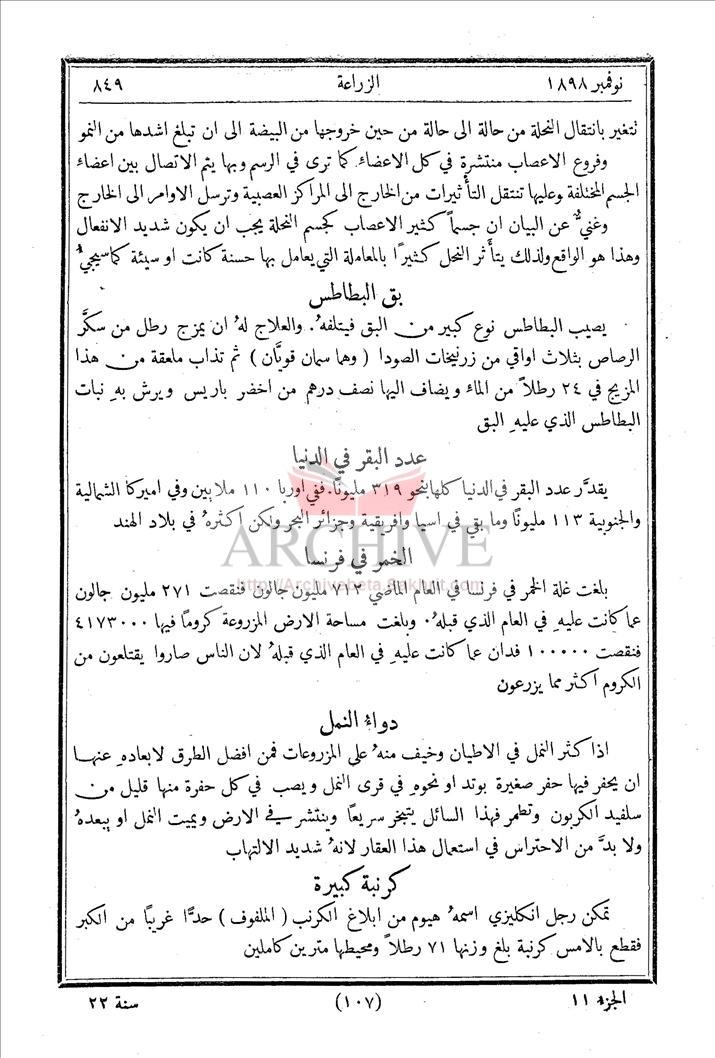 نوفمبر ١٨٩٨ الزراعة ٨٤٩
تتغير بانتقال النحلة من حالة الى حالة من حين خروجها من البيضة الى ان تبلغ اشدها من النمو
وفروع الاعصاب منتشرة في كل الاعضاء كما ترى في الرسم وبها يتم الاتصال بين اعضاء
الجسم المختلفة وعليها تنتقل التأثيرات من الخارج الى المراكز العصبية وترسل الاوامر الى الخارج
وغنيٌّ عن البيان ان جسماً كثير الاعصاب كجسم النحلة يجب ان يكون شديد الانفعال
وهذا هو الواقع ولذلك يتأثر النحل كثيرًا بالمعاملة التي يعامل بها حسنة كانت او سيئة كما سيجيءُ
بق البطاطس
يصيب البطاطس نوع كبير من البق فيتلفهُ. والعلاج لهُ ان يمزج رطل من سكَّر
الرصاص بثلاث اواقي من زرنيخات الصودا (وهما سمان قويَّان) ثم تذاب ملعقة من هذا
المزيج في ٢٤ رطلاً من الماء ويضاف اليها نصف درهم من اخضر باريس ويرش بهِ نبات
البطاطس الذي عليهِ البق
عدد البقر في الدنيا
يقدَّر عدد البقر في الدنيا كلها بنحو ٣١٩ مليونًا. ففي اوربا ١١٠ ملايين وفي اميركا الشمالية
والجنوبية ١١٣ مليونًا وما بقي في اسيا وافريقية وجزائر البحر ولكن اكثرهُ في بلاد الهند
ARCHIVE
الخمر في فرنسا
http://Archivebeta.Sakhrit.com
بلغت غلة الخمر في فرنسا في العام الماضي ٧١٢ مليون جالون فنقصت ٢٧١ مليون جالون
عما كانت عليهِ في العام الذي قبلهُ. وبلغت مساحة الارض المزروعة كرومًا فيها ٤١٧٣٠٠٠
فنقصت ١٠٠٠٠٠ فدان عما كانت عليهِ في العام الذي قبلهُ لان الناس صاروا يقتلعون من
الكروم اكثر مما يزرعون
دواء النمل
اذا كثر النمل في الاطيان وخيف منهُ على المزروعات فمن افضل الطرق لابعادهِ عنها
ان يحفر فيها حفر صغيرة بوتد او نحوهِ في قرى النمل ويصب في كل حفرة منها قليل من
سلفيد الكربون وتطمر فهذا السائل يتبخر سريعًا وينتشر في الارض ويميت النمل او يبعدهُ
ولا بدَّ من الاحتراس في استعمال هذا العقار لانهُ شديد الالتهاب
كرنبة كبيرة
تمكن رجل انكليزي اسمهُ هيوم من ابلاغ الكرنب (الملفوف) حدًّا غريبًا من الكبر
فقطع بالامس كرنبة بلغ وزنها ٧١ رطلاً ومحيطها مترين كاملين
الجزء ١١ (١٠٧) سنة ٢٢